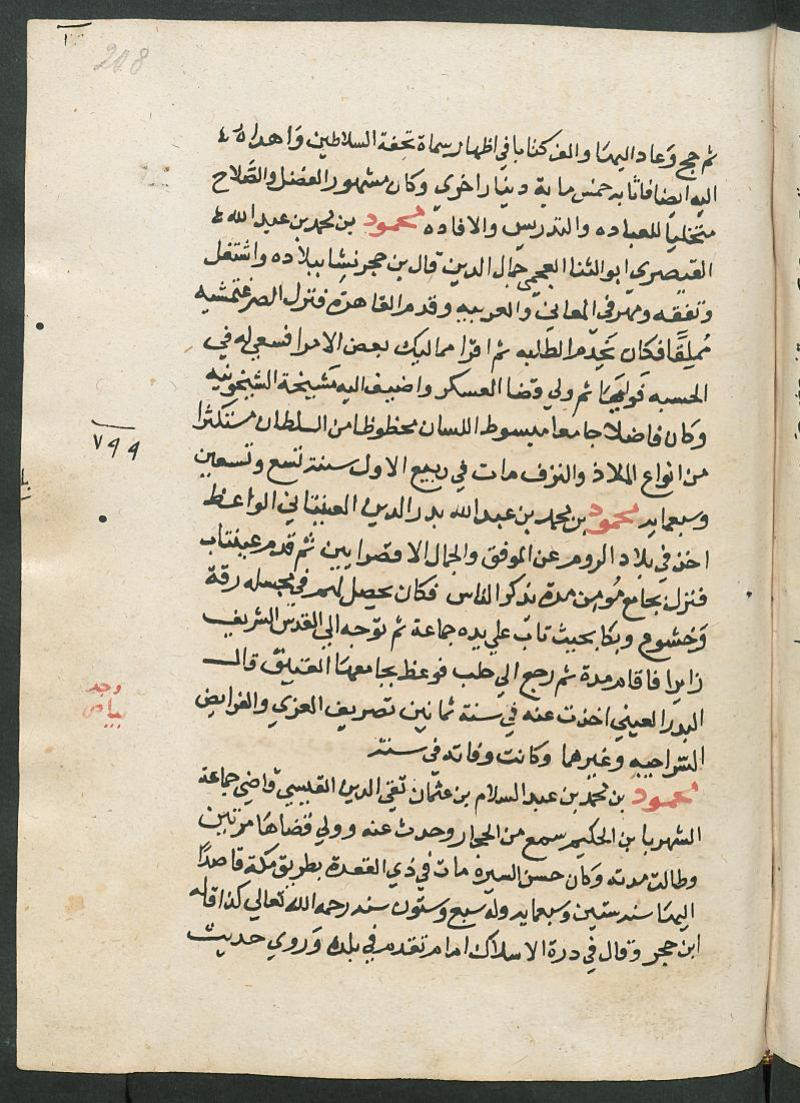 208
ثم حج وعاد اليها والف كتابا في اظهار سماه تحفة السلاطين واهداه
اليه ايضا فاثابه خمس ماية دينار اخري وكان مشهور الفضل والصلاح
متخليا للعباده والتدريس والافاده محمود بن محمد بن عبد الله
القيصري ابو الثنا العجمي جمال الدين قال بن حجر نشا ببلاده واشتغل
وتفقه ومهر في المعاني والعربيه وقدم القاهرة فنزل الصرغتمشيه
مملقا فكان يخدم الطلبه ثم اقرا مماليك بعض الامرا فسعي له في
الحسبه فوليها ثم ولي قضا العسكر واضيف اليه مشيخة الشيخونيه
وكان فاضلا جامعا مبسوط اللسان محظوظا من السلطان مستكثرا
٧٩٩
من انواع الملاذ والترف مات في ربيع الاول سنة تسع وتسعين
وسبعمايه محمود بن محمد بن عبد الله بدر الدين العينتابي الواعظ
اخذ في بلاد الروم عن الموفق والجمال الاقصرايين ثم قدم عينتاب
فنزل بجامع مومن مدة يذكر الناس فكان يحصل لهم في مجلسه رقة
وخشوع وبكا بحيث تاب علي يده جماعة ثم توجه الي القدس الشريف
زايرا فاقام مدة ثم رجع الي حلب فوعظ بجامعها العتيق قال
وجد
بياض
البدر العيني اخذت عنه في سنة ثمانين تصريف العزي والفرايض
السراجيه وغيرهما وكانت وفاته في سنة
محمود بن محمد بن عبد السلام بن عثمان تقي الدين القيسي قاضي حماعة
الشهر بابن الحكيم سمع من الحجار وحدث عنه وولي قضاها مرتين
وطالت مدته وكان حسن السيرة مات في ذي القعدة بطريق مكة قاصدا
اليها سنه ستين وسبعمايه وله سبع وستون سنه رحمه الله تعالي كذا قاله
ابن حجر وقال في درة الاسلاك امام تقدم في بلده وروي حديث